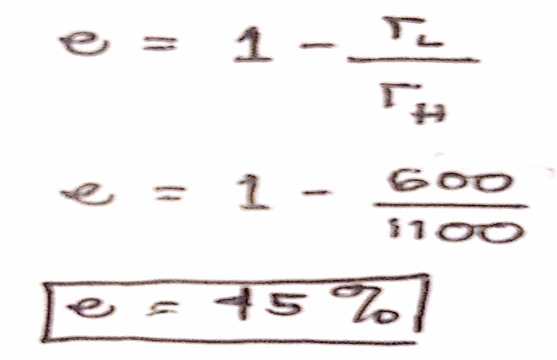 e = 1 - TL/TH
e = 1 - 600/1100
e = 45%